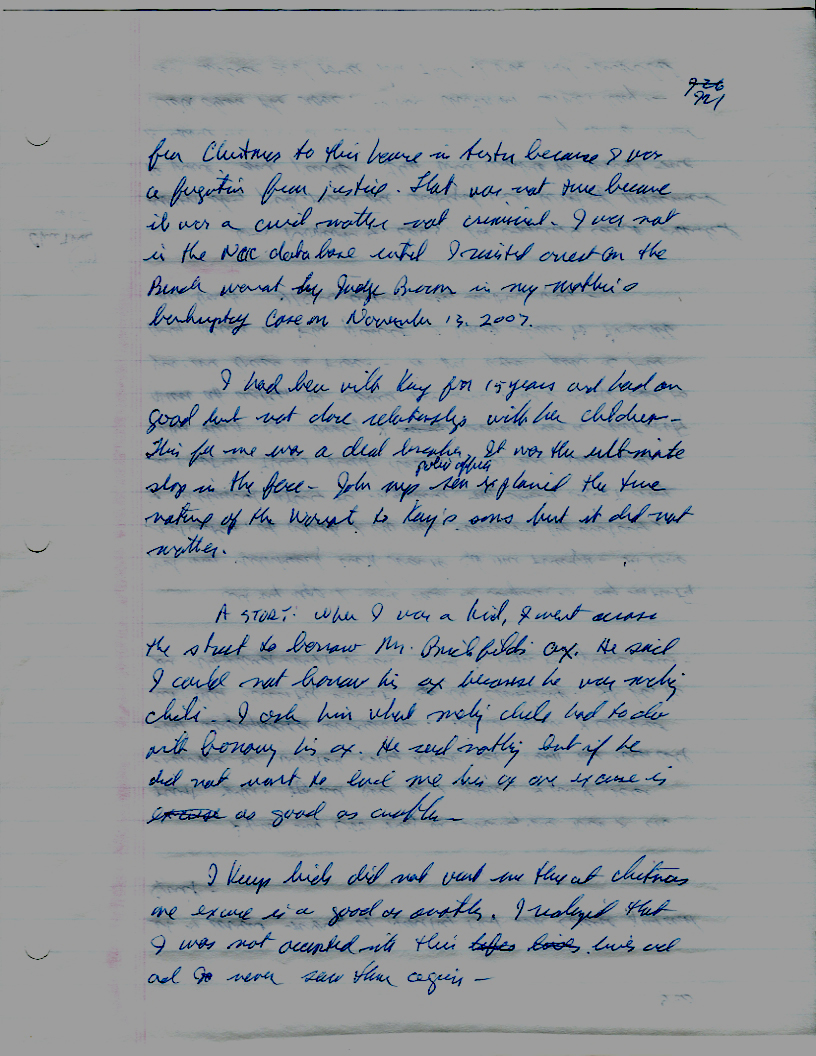 921
for Christmas to their house in because I was
a fugitive from justice. That was not true because
it was a civil matter not criminal. I was not
in the NCIC data base until I resisted arrest on the
Bench warrant by Judge Brown in my mother's
bankruptcy case on November 13, 2007.
I had been with Kay for 15 years and had an
good but not close relationship with her children -
This for me was a deal breaker. It was the ultimate
police officer
slap in the face - John my son explained the true
nature of the warrant to Kay's sons but it did not
matter.
A STORY: when I was a kid, I went across
the street to borrow Mr. ax. He said
I could not borrow his ax because he was making
chili. I ask him what making chili had to do
with borrowing his ax. He said nothing but if he
did not want to lend me his ax one excuse is
excuse as good as another -
I Kays kids did not want me there at christmas
one excuse is a good as another. I realized that
I was not accepted into their lives and
and so never saw them again -